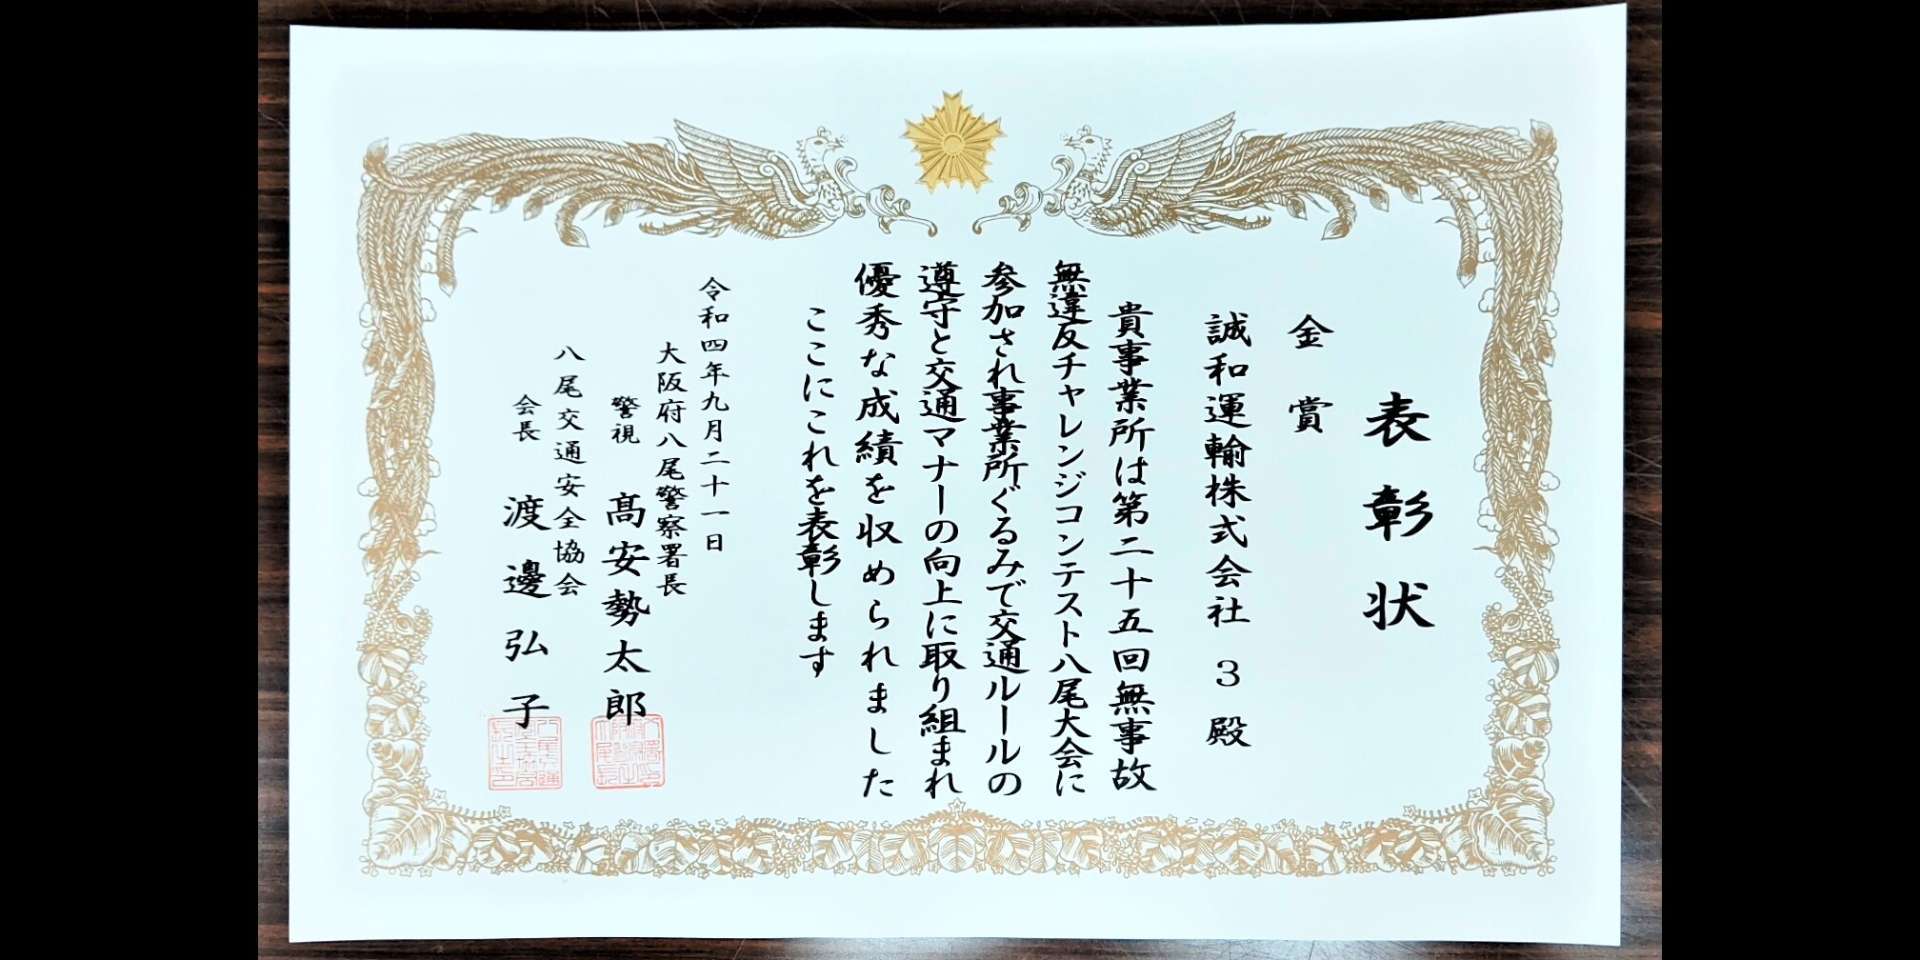 表彰状
金賞
誠和運輸株式会社 3 殿
貴事業所は第二十五回無事故
無違反チャレンジコンテスト八尾大会に
参加され事業所ぐるみで交通ルールの
遵守と交通マナーの向上に取り組まれ
優秀な成績を収められました
ここにこれを表彰します
令和四年九月二十一日
大阪府八尾警察署長
警視 髙安勢太郎
八尾交通安全協会
会長 渡邊弘子